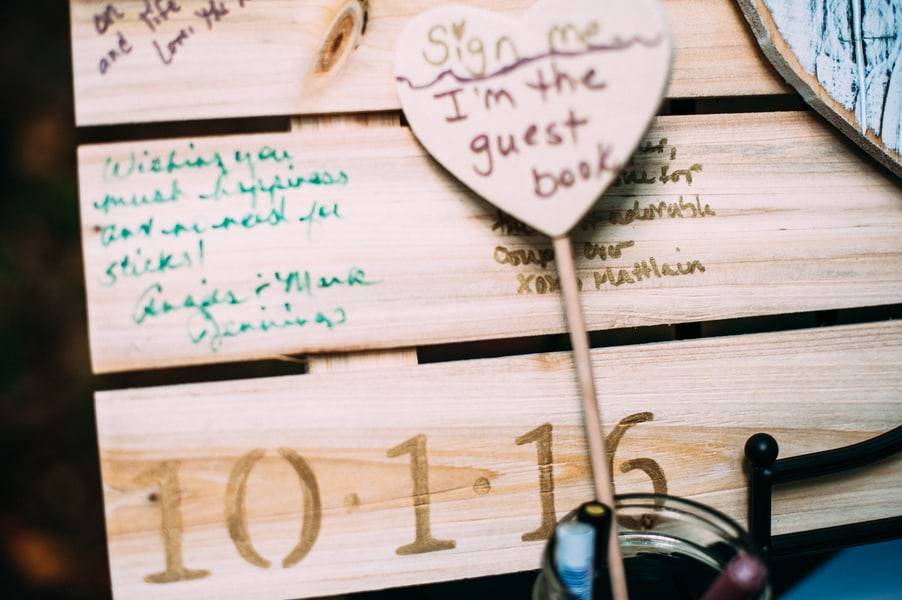 on
and life
Love, the
Sign me
I'm the
guest
book
Wishing you
much happiness
and no need for
sticks!
& Mark
Jennings
adorable
Couple ever
XOXO
10·1·16